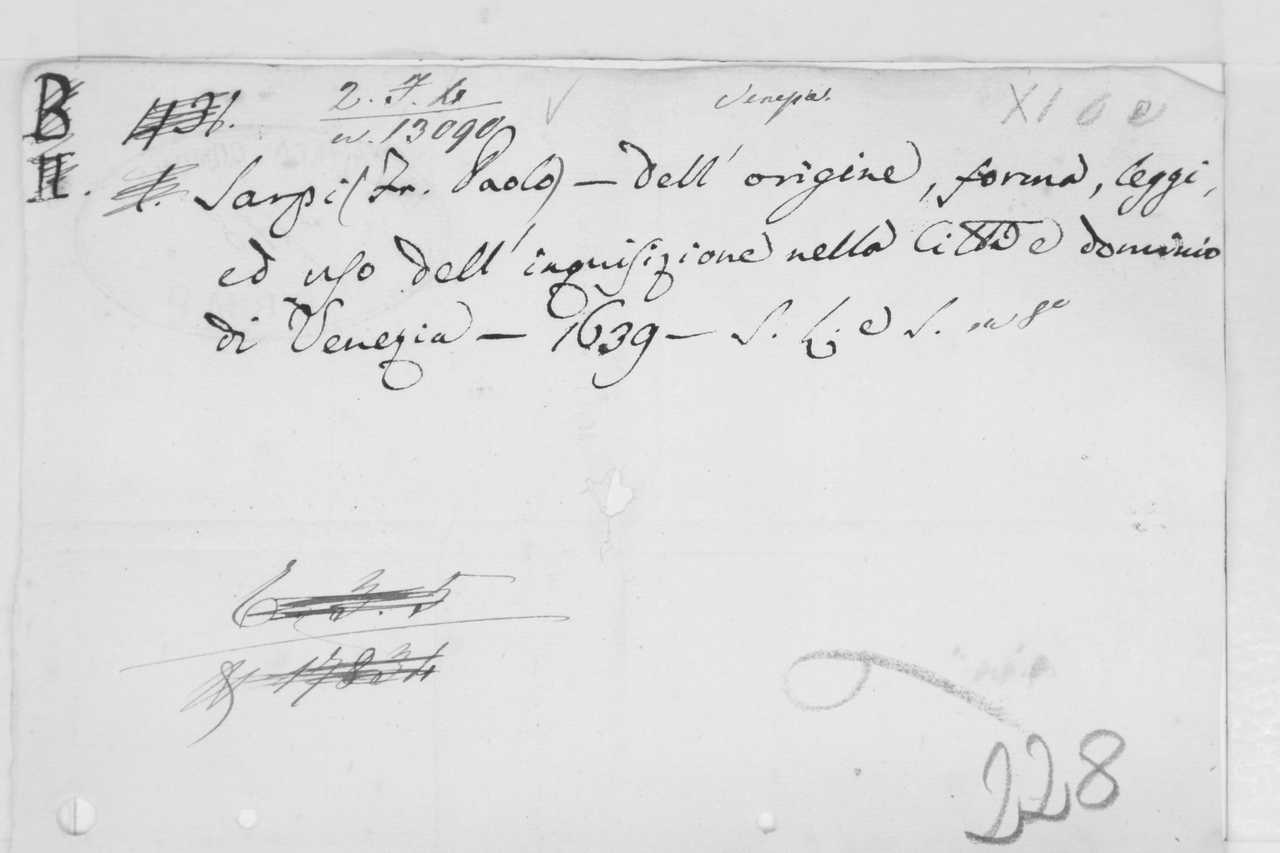 B 2. 7. 4 Venezia.
n. 13090
II. 1. Sarpi (Fr. Paolo) — dell' origine, forma, leggi,
ed uso dell' inquisizione nella Città e dominio
di Venezia — 1639 — S. L. e S. in 8°
6. 3. 5
17834
228